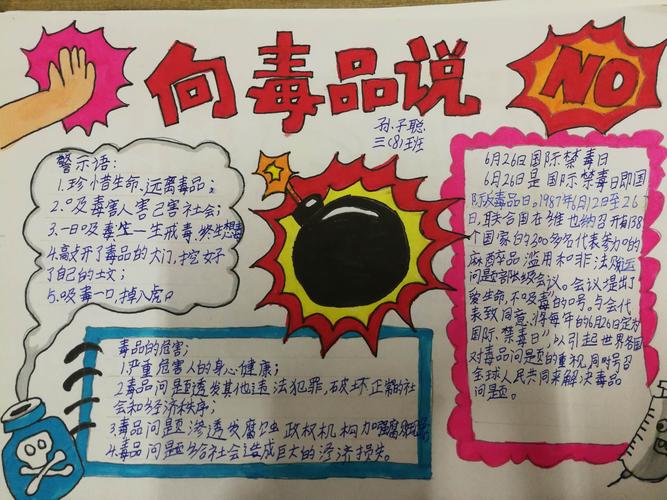 向毒品说
NO
孙子聪
三(8)班
警示语:
1.珍惜生命、远离毒品;
2.吸毒害人害己害社会;
3.一日吸毒一生戒毒,终生想毒
4.敲开了毒品的大门,挖好
了自己的土文;
5.吸毒一口,掉入虎口
毒品的危害;
1.严重危害人的身心健康;
2毒品问题诱发其他违法犯罪,破坏正常的社
会和经济秩序;
3毒品问题渗透发腐蚀政权机构加
4.毒品问题给社会造成巨大的经济损失。
6月26日国际禁毒日
6月26日是国际禁毒日即国
际反毒品日。1987年6月12日至26
日,联合国在维也纳召开有138
个国家的3000多名代表参加的
麻醉品滥用和非法贩运
问题部长级会议。会议堤出了
爱生命,不吸毒的口号。与会代
表致同意,将每年的6月26日定为
国际禁毒日",以引起世界各国
对毒品问题的重视,同时号召
全球人民共同来解决毒品
问题。